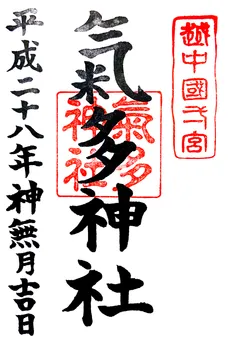 越中國弌宮
氣多神社
氣多神社
平成二十八年神無月吉日